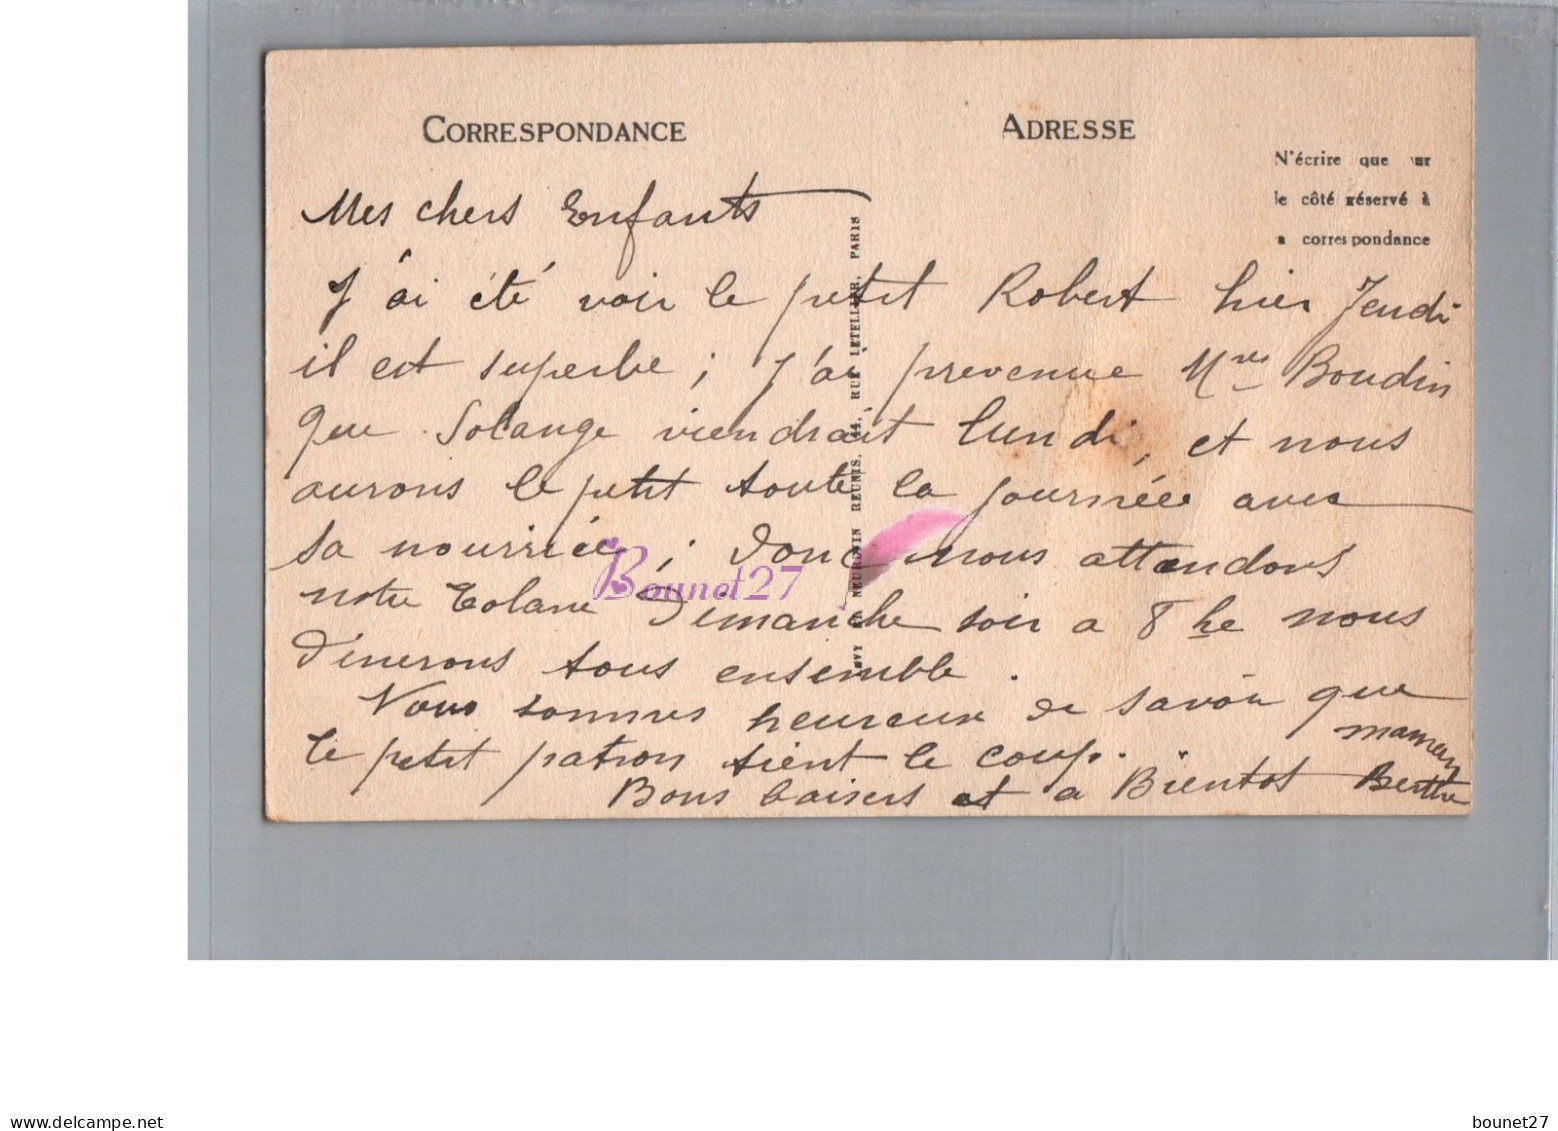 CORRESPONDANCE
ADRESSE
N'écrire que sur
le côté réservé à
la correspondance
Mes chers Enfants
J'ai été voir le petit Robert hier Jeudi
il est superbe ; J'ai prevenue Mme Boudin
que Solange viendrait lundi, et nous
aurons le petit toute la journée avec
sa nourrice ; Donc nous attendons
notre Dimanche soir a 8 he nous
dinerons tous ensemble.
Nous sommes heureux de savoir que
le petit patron tient le coup.
Bons baisers et a Bientot maman Berthe
LEVY ET NEURDEIN REUNIS, 44, RUE LETELLIER, PARIS
Bounet27
delcampe.net
bounet27